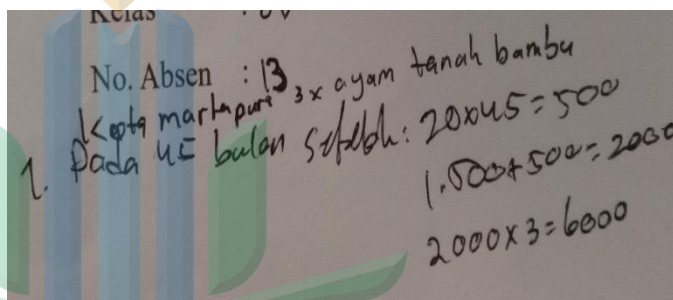 Kelas :
No. Absen : 13
Kota martapura 3x ayam tanah bambu
1. Pada 45 bulan setelah: 20x45=500
1.500+500=2000
2000x3=6000